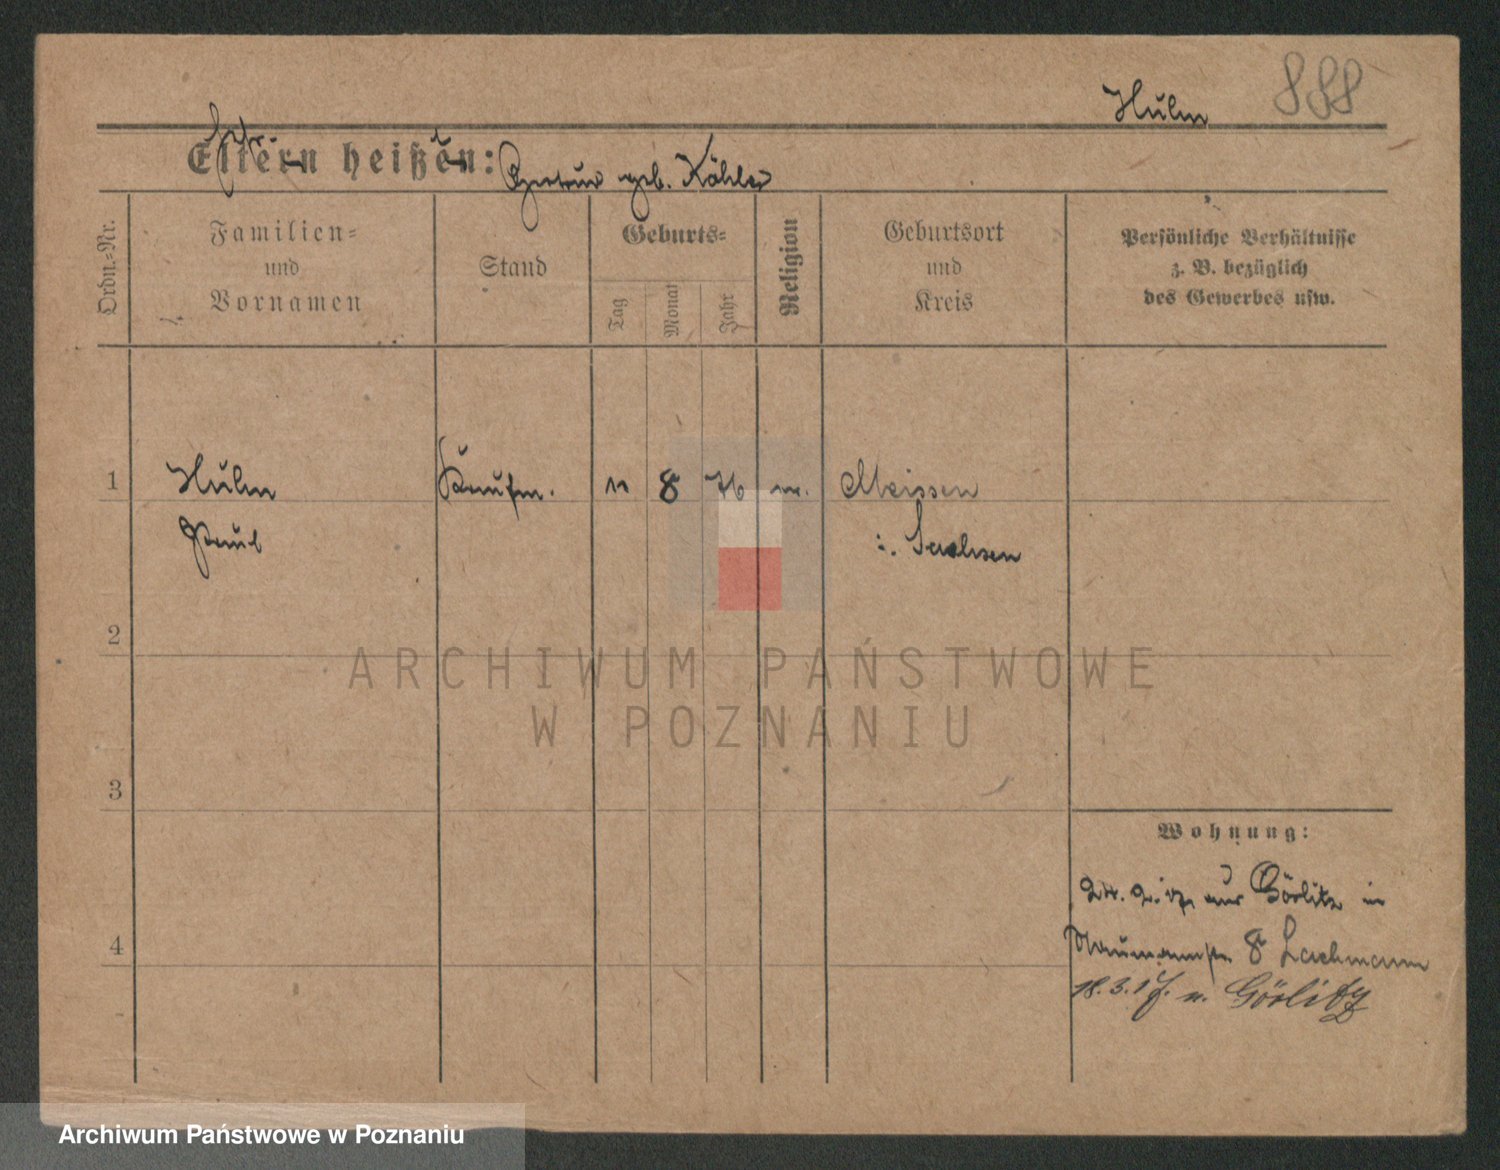 Hulm 888
Eltern heißen: geb. Köhler
Ordn.-Nr.
Familien-
und
Vornamen
Stand
Geburts-
Tag
Monat
Jahr
Religion
Geburtsort
und
Kreis
Persönliche Verhältnisse
z. B. bezüglich
des Gewerbes usw.
1 Hulm Kaufm. 11 8 76 Meissen
Paul i. Sachsen
2
3
4
Wohnung:
24. 2. 17 aus Görlitz in
Naumannstr. 8 Lachmann
18. 3. 17. n. Görlitz
ARCHIWUM PAŃSTWOWE
W POZNANIU
Archiwum Państwowe w Poznaniu